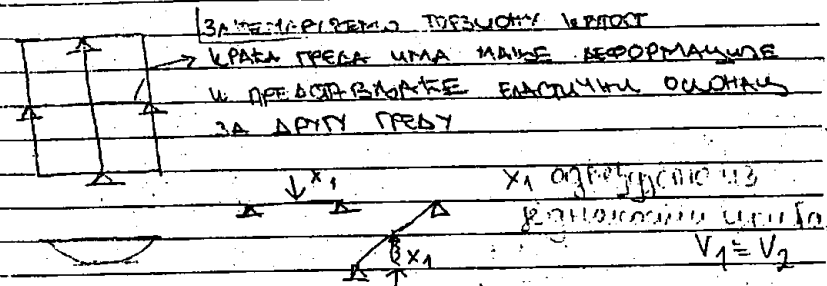 ЗАНЕМАРУЈЕМО ТОРЗИОНУ КРУТОСТ
КРАЋА ГРЕДА ИМА МАЊЕ ДЕФОРМАЦИЈЕ
И ПРЕДСТАВЉАЋЕ ЕЛАСТИЧНИ ОСЛОНАЦ
ЗА ДРУГУ ГРЕДУ
x1
x1 одређујемо из
једнакости угиба
x1
V1 = V2